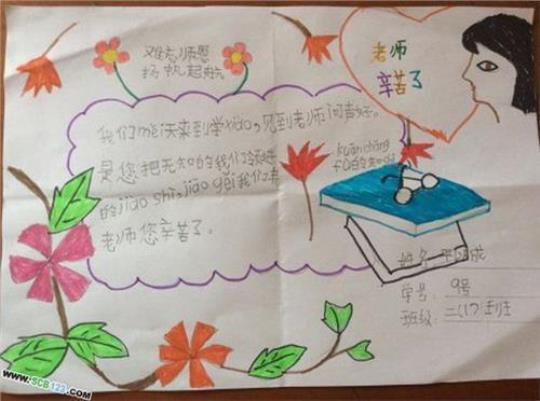 难忘师恩
扬帆起航
老师
辛苦了
我们měi天来到学xiào,见到老师问声好。
是您把无知的我们
的jiāo shì,jiāo gěi我们
老师您辛苦了。
kuān chǎng
的知
姓名:
学号: 9号
班级:
www.SCB123.COM